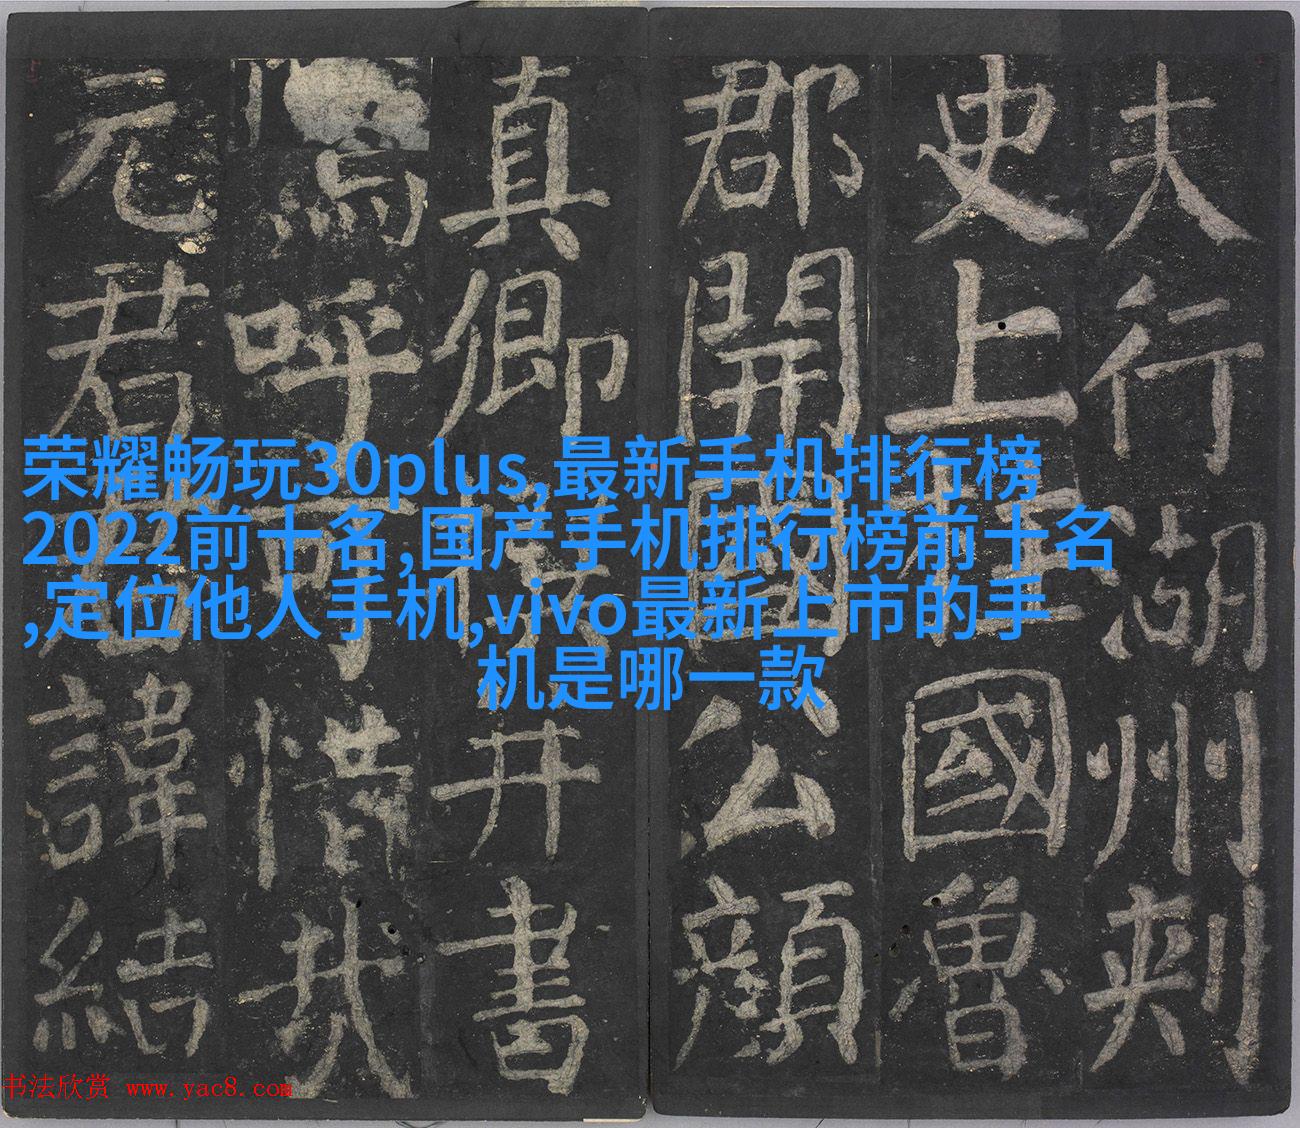 夫行湖州刺
史上柱國魯
郡開國公顔
真卿并書
呼可惜哉
元君諱結
荣耀畅玩30plus,最新手机排行榜
2022前十名,国产手机排行榜前十名
,定位他人手机,vivo最新上市的手
机是哪一款
书法欣赏 www.yac8.com